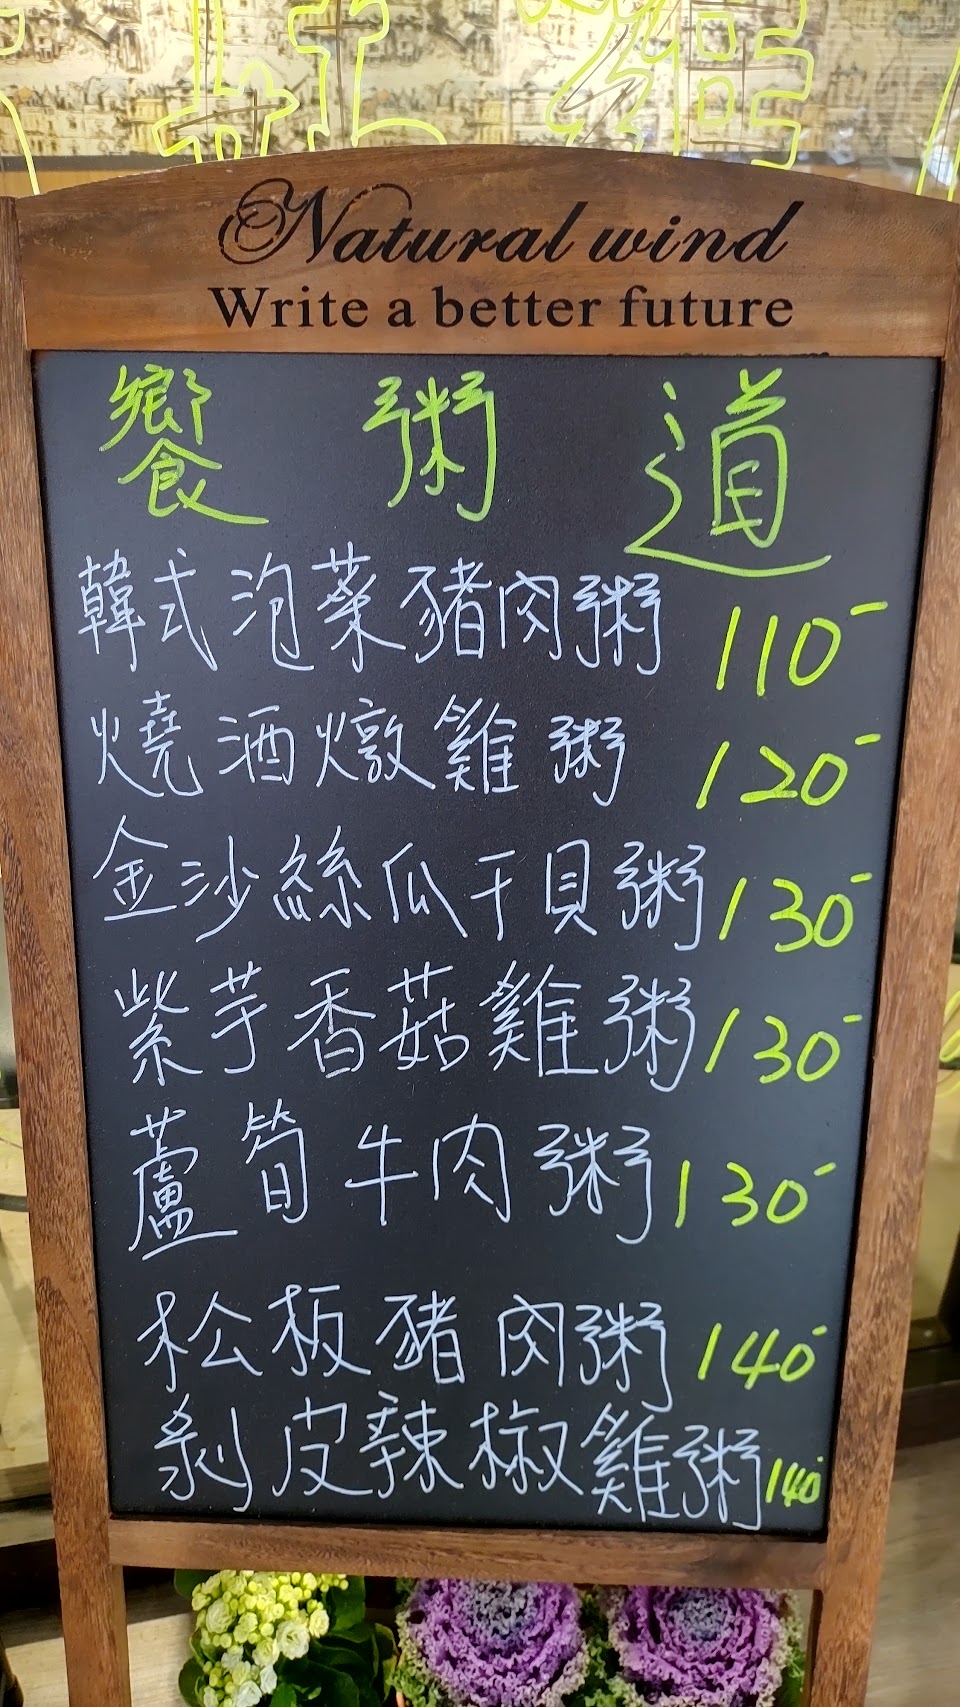 Natural wind
Write a better future
饗 粥 道
韓式泡菜豬肉粥 110-
燒酒燉雞粥 120-
金沙絲瓜干貝粥 130-
紫芋香菇雞粥 130-
蘆筍牛肉粥 130-
松板豬肉粥 140-
剝皮辣椒雞粥 140-